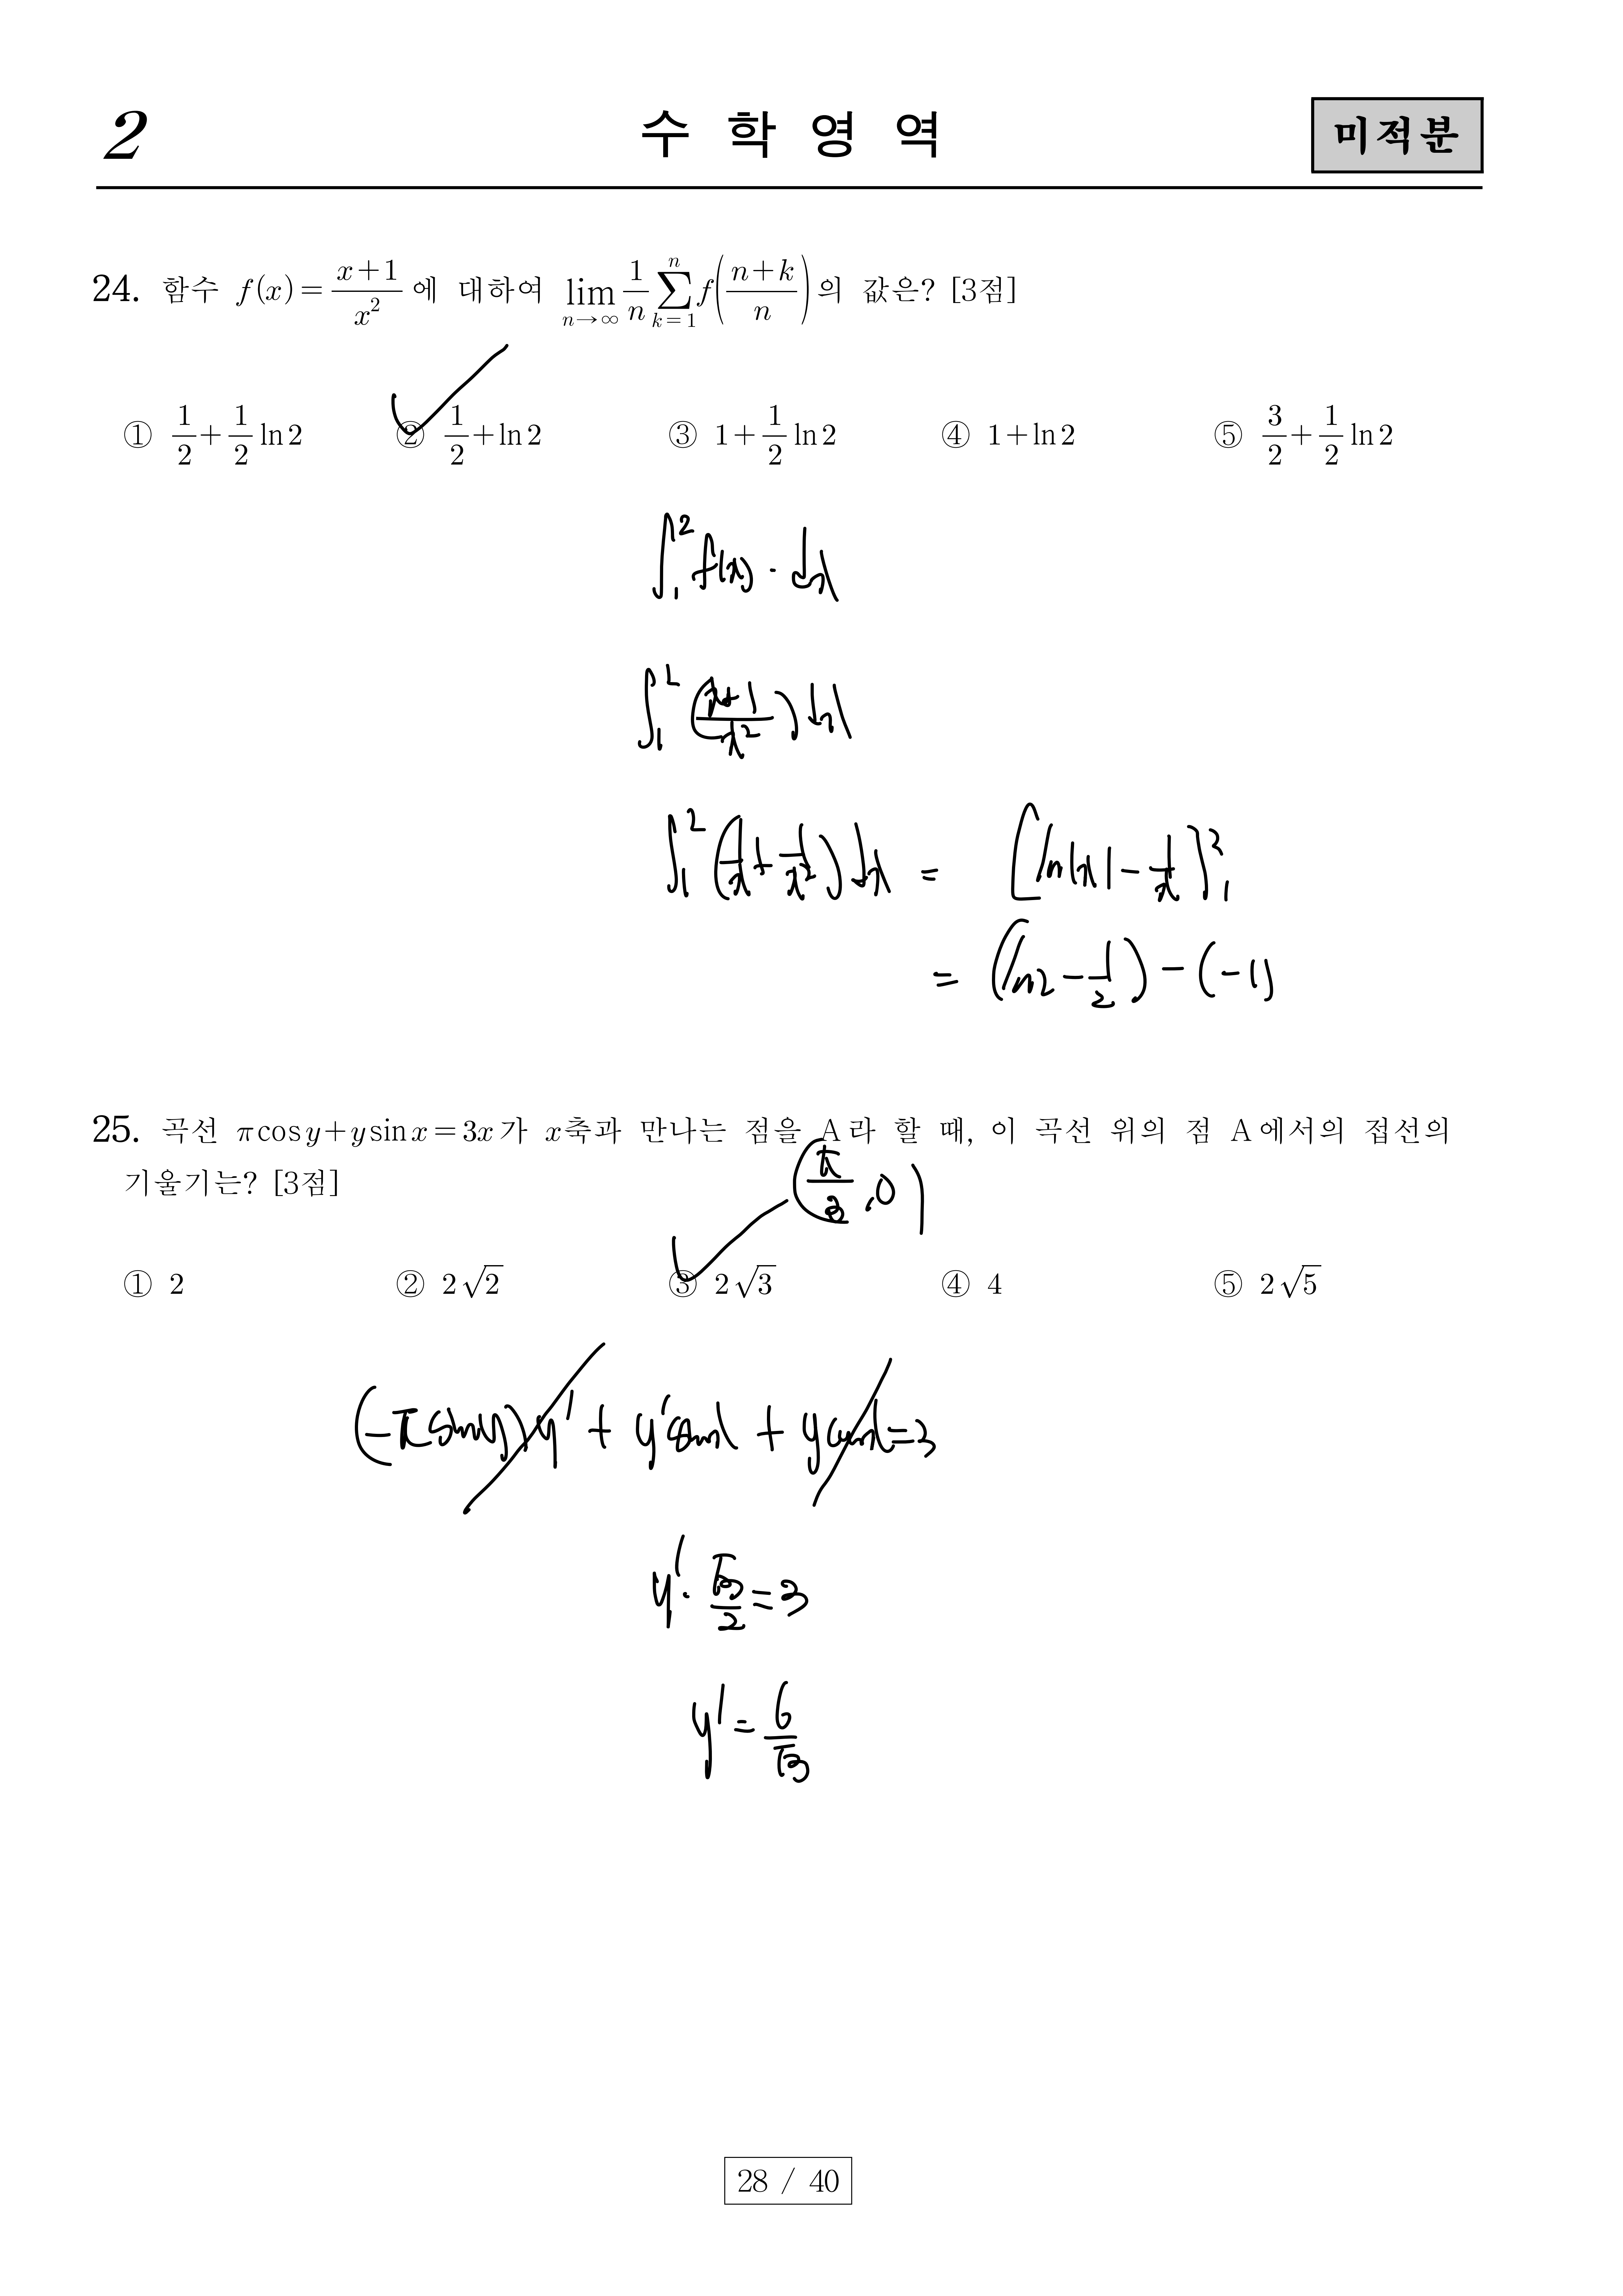 2 수 학 영 역 미적분
24. 함수 f(x) = (x+1)/x² 에 대하여 lim_{n→∞} 1/n ∑_{k=1}^{n} f((n+k)/n) 의 값은? [3점]
① 1/2 + 1/2 ln2 ② 1/2 + ln2 ③ 1 + 1/2 ln2 ④ 1 + ln2 ⑤ 3/2 + 1/2 ln2
∫₁² f(x) · dx
∫₁² ((x+1)/x²) dx
∫₁² (1/x + 1/x²) dx = [ln|x| - 1/x]₁²
= (ln2 - 1/2) - (-1)
25. 곡선 π cos y + y sin x = 3x 가 x축과 만나는 점을 A라 할 때, 이 곡선 위의 점 A에서의 접선의
기울기는? [3점]
(π/3, 0)
① 2 ② 2√2 ③ 2√3 ④ 4 ⑤ 2√5
(-π sin y) y' + y' sin x + y cos x = 3
y' · √3/2 = 3
y' = 6/√3
28 / 40